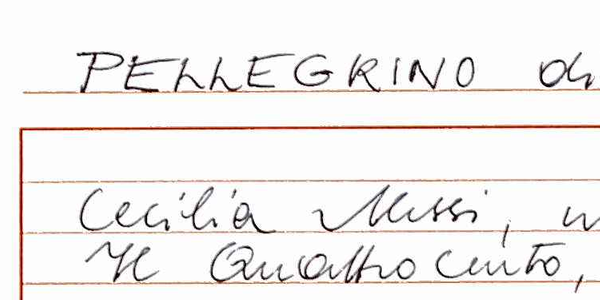 PELLEGRINO di
Cecilia Mussi,
Il Quattrocento,